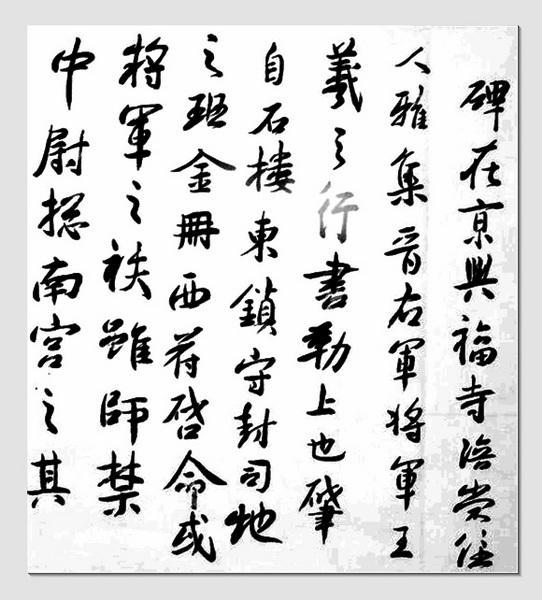 碑在京興福寺陪常住
人雅集晉右軍將軍王
羲之行書勒上也肇
自石樓東鎖守封司地
之班金冊西苻啓命或
將軍之袟雖師禁
中尉摠南宮之其